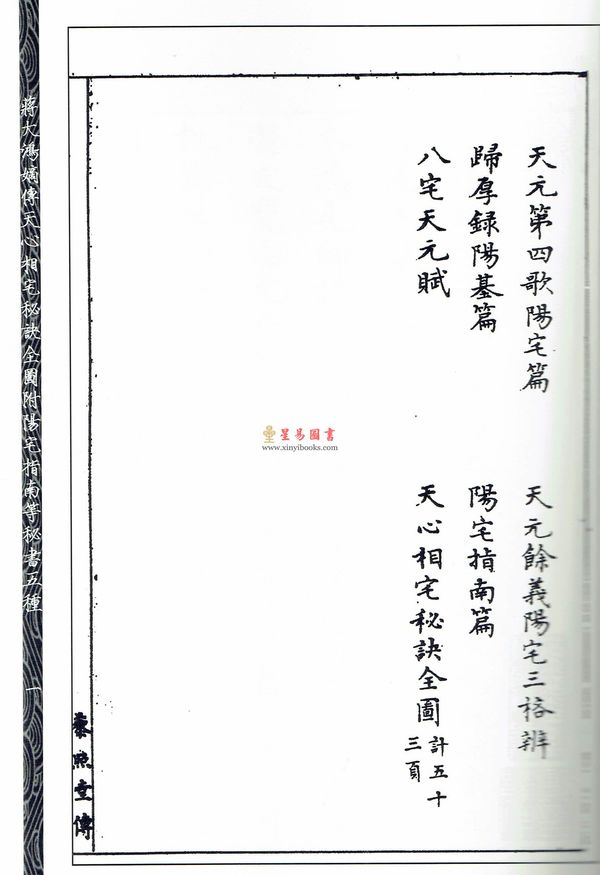 天元第四歌陽宅篇
天元餘義陽宅三格辨
歸厚録陽基篇
陽宅指南篇
八宅天元賦
天心相宅秘訣全圖
計五十
三頁
星易圖書
www.xinyibooks.com
蔣大鴻嫡傳天心相宅秘訣全圖附陽宅指南等秘書五種
一
熙堂傳